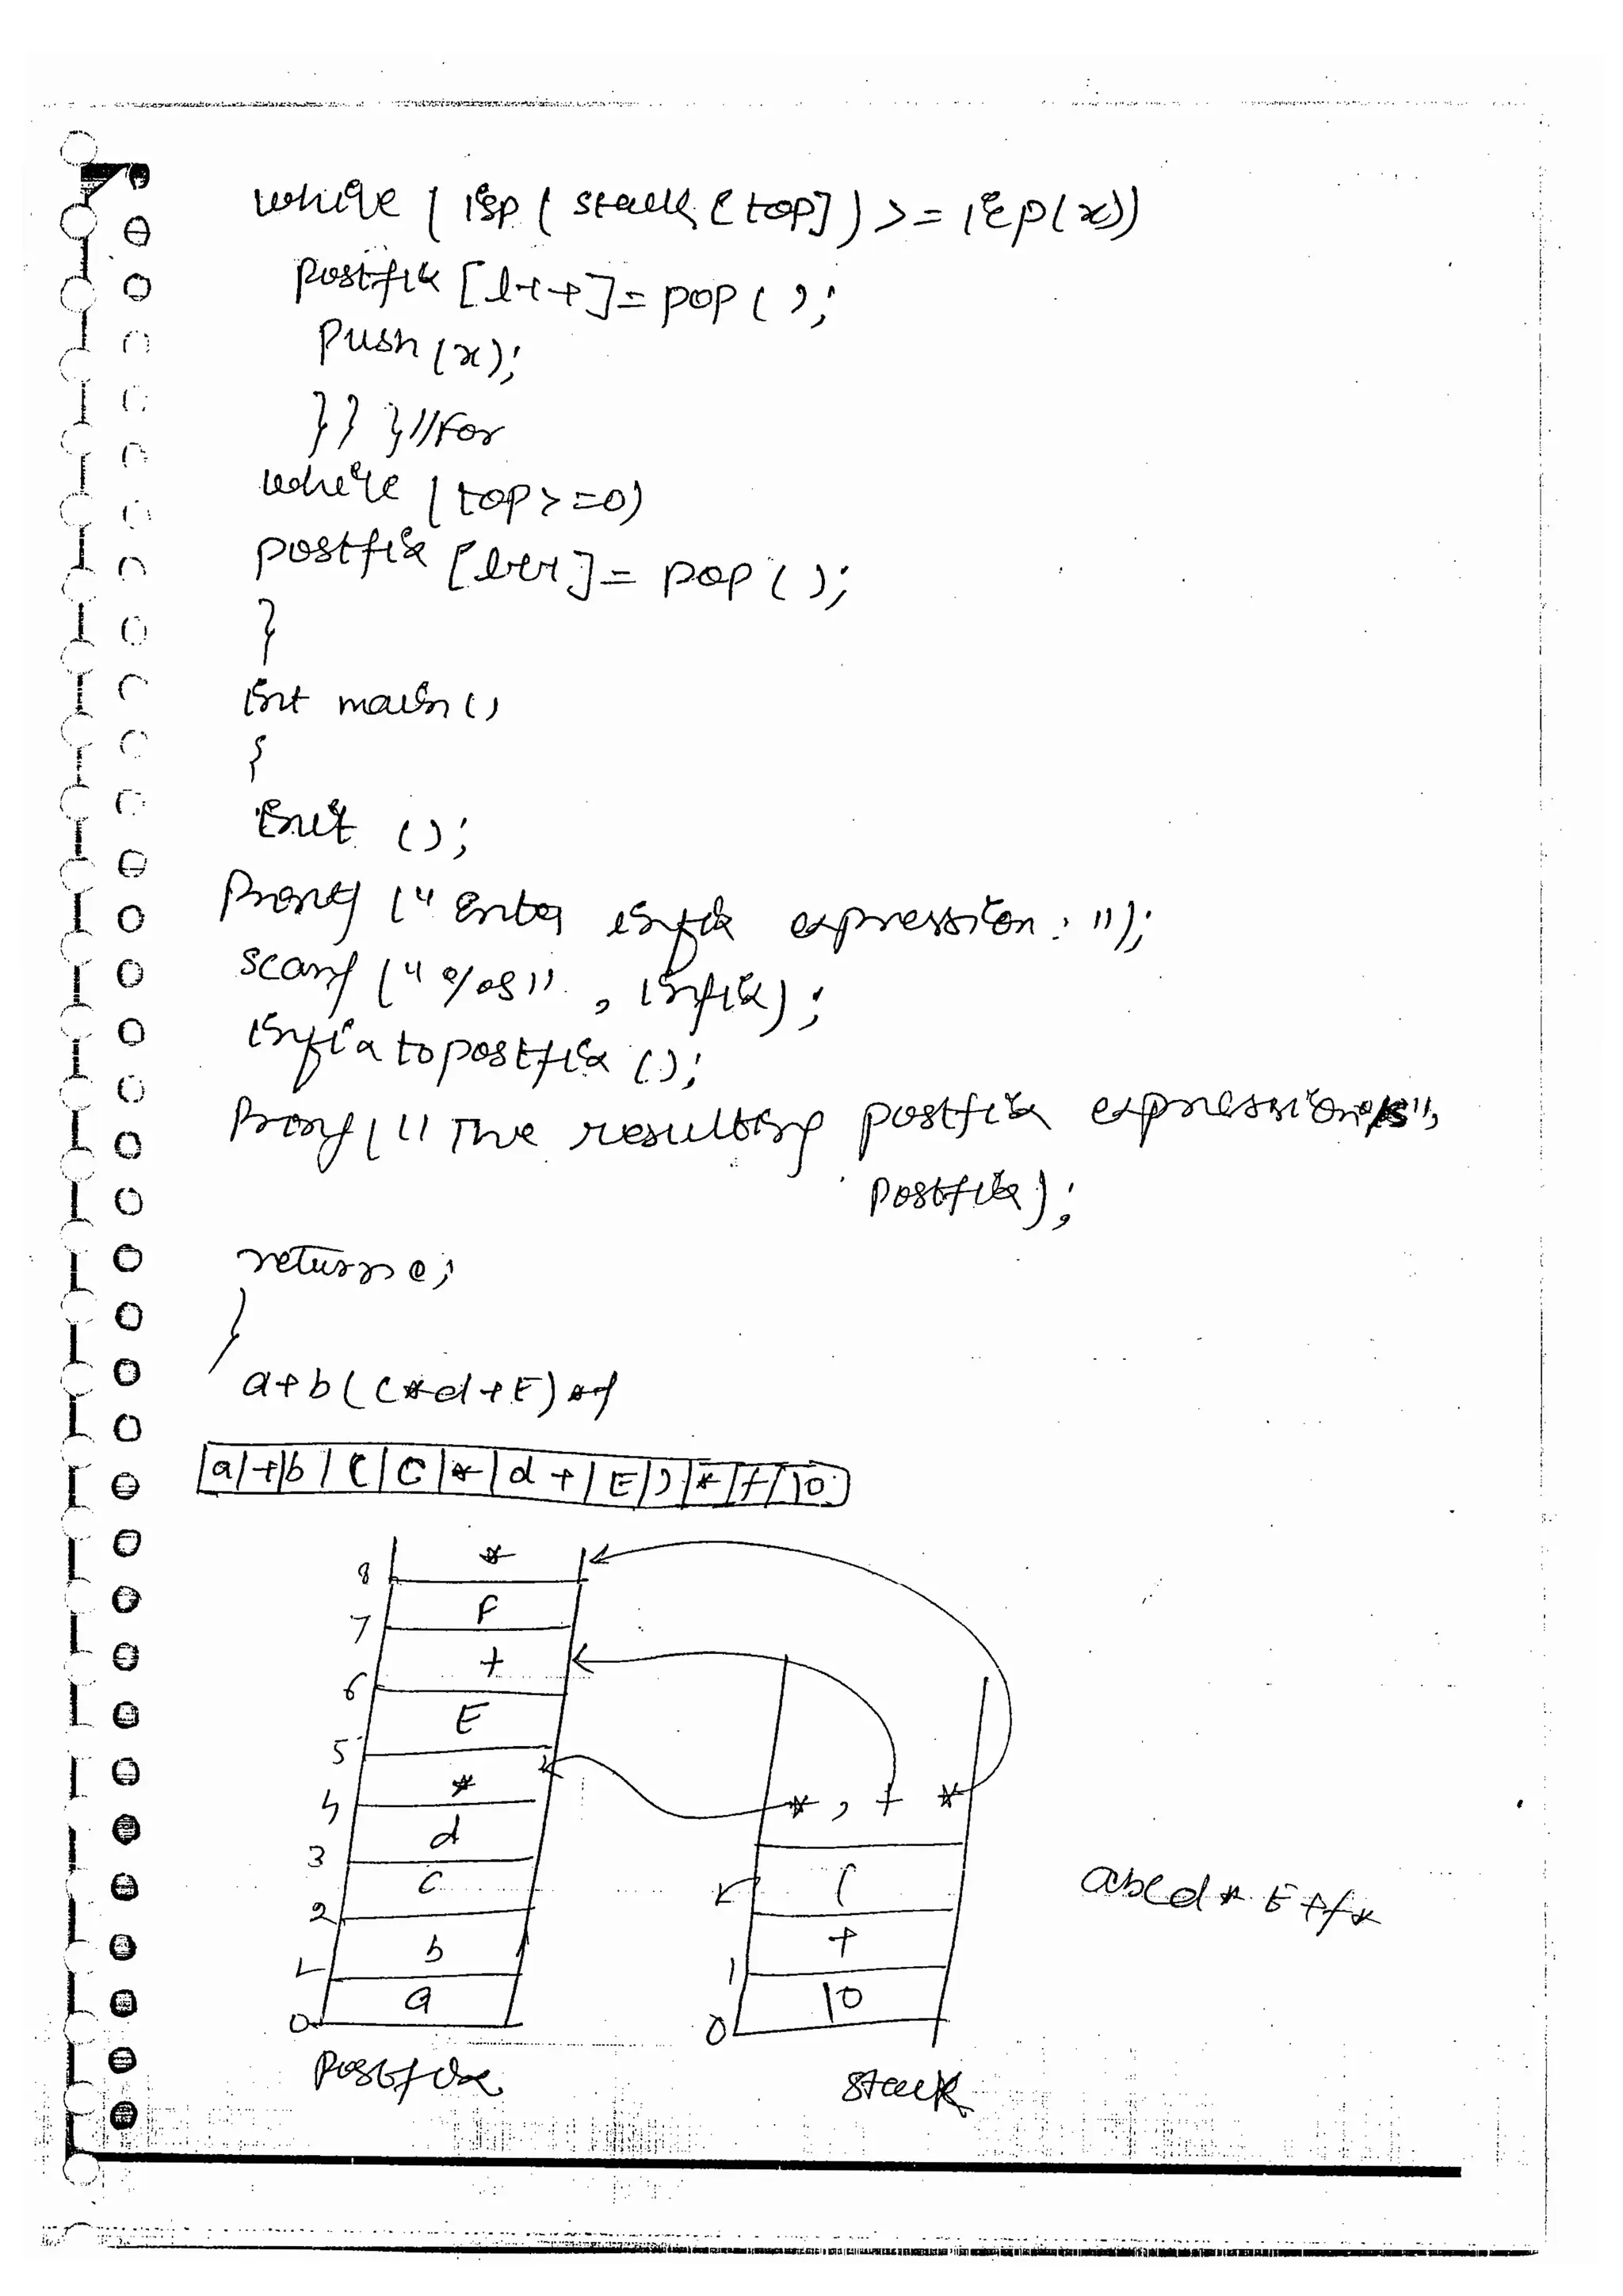 while ( isp ( stack [ top] ) >= icp(x))
postfix [l++] = pop ( );
push (x);
} } } //for
while (top >=0)
postfix [l++] = pop ( );
}
int main ()
{
init ();
Printf (" Enter infix expression : ");
scanf (" %s" , infix) ;
infix to postfix ();
Printf (" The resulting postfix expression %s",
postfix);
return 0;
}
a+b ( c*d+E) *f
a + b ( C * d + E ) * f \0
8 *
7 F
6 +
5 E
4 * *, + *
3 d
2 c (
1 b 1 +
0 a 0 \0
Postfix stack
abcd * E + f *